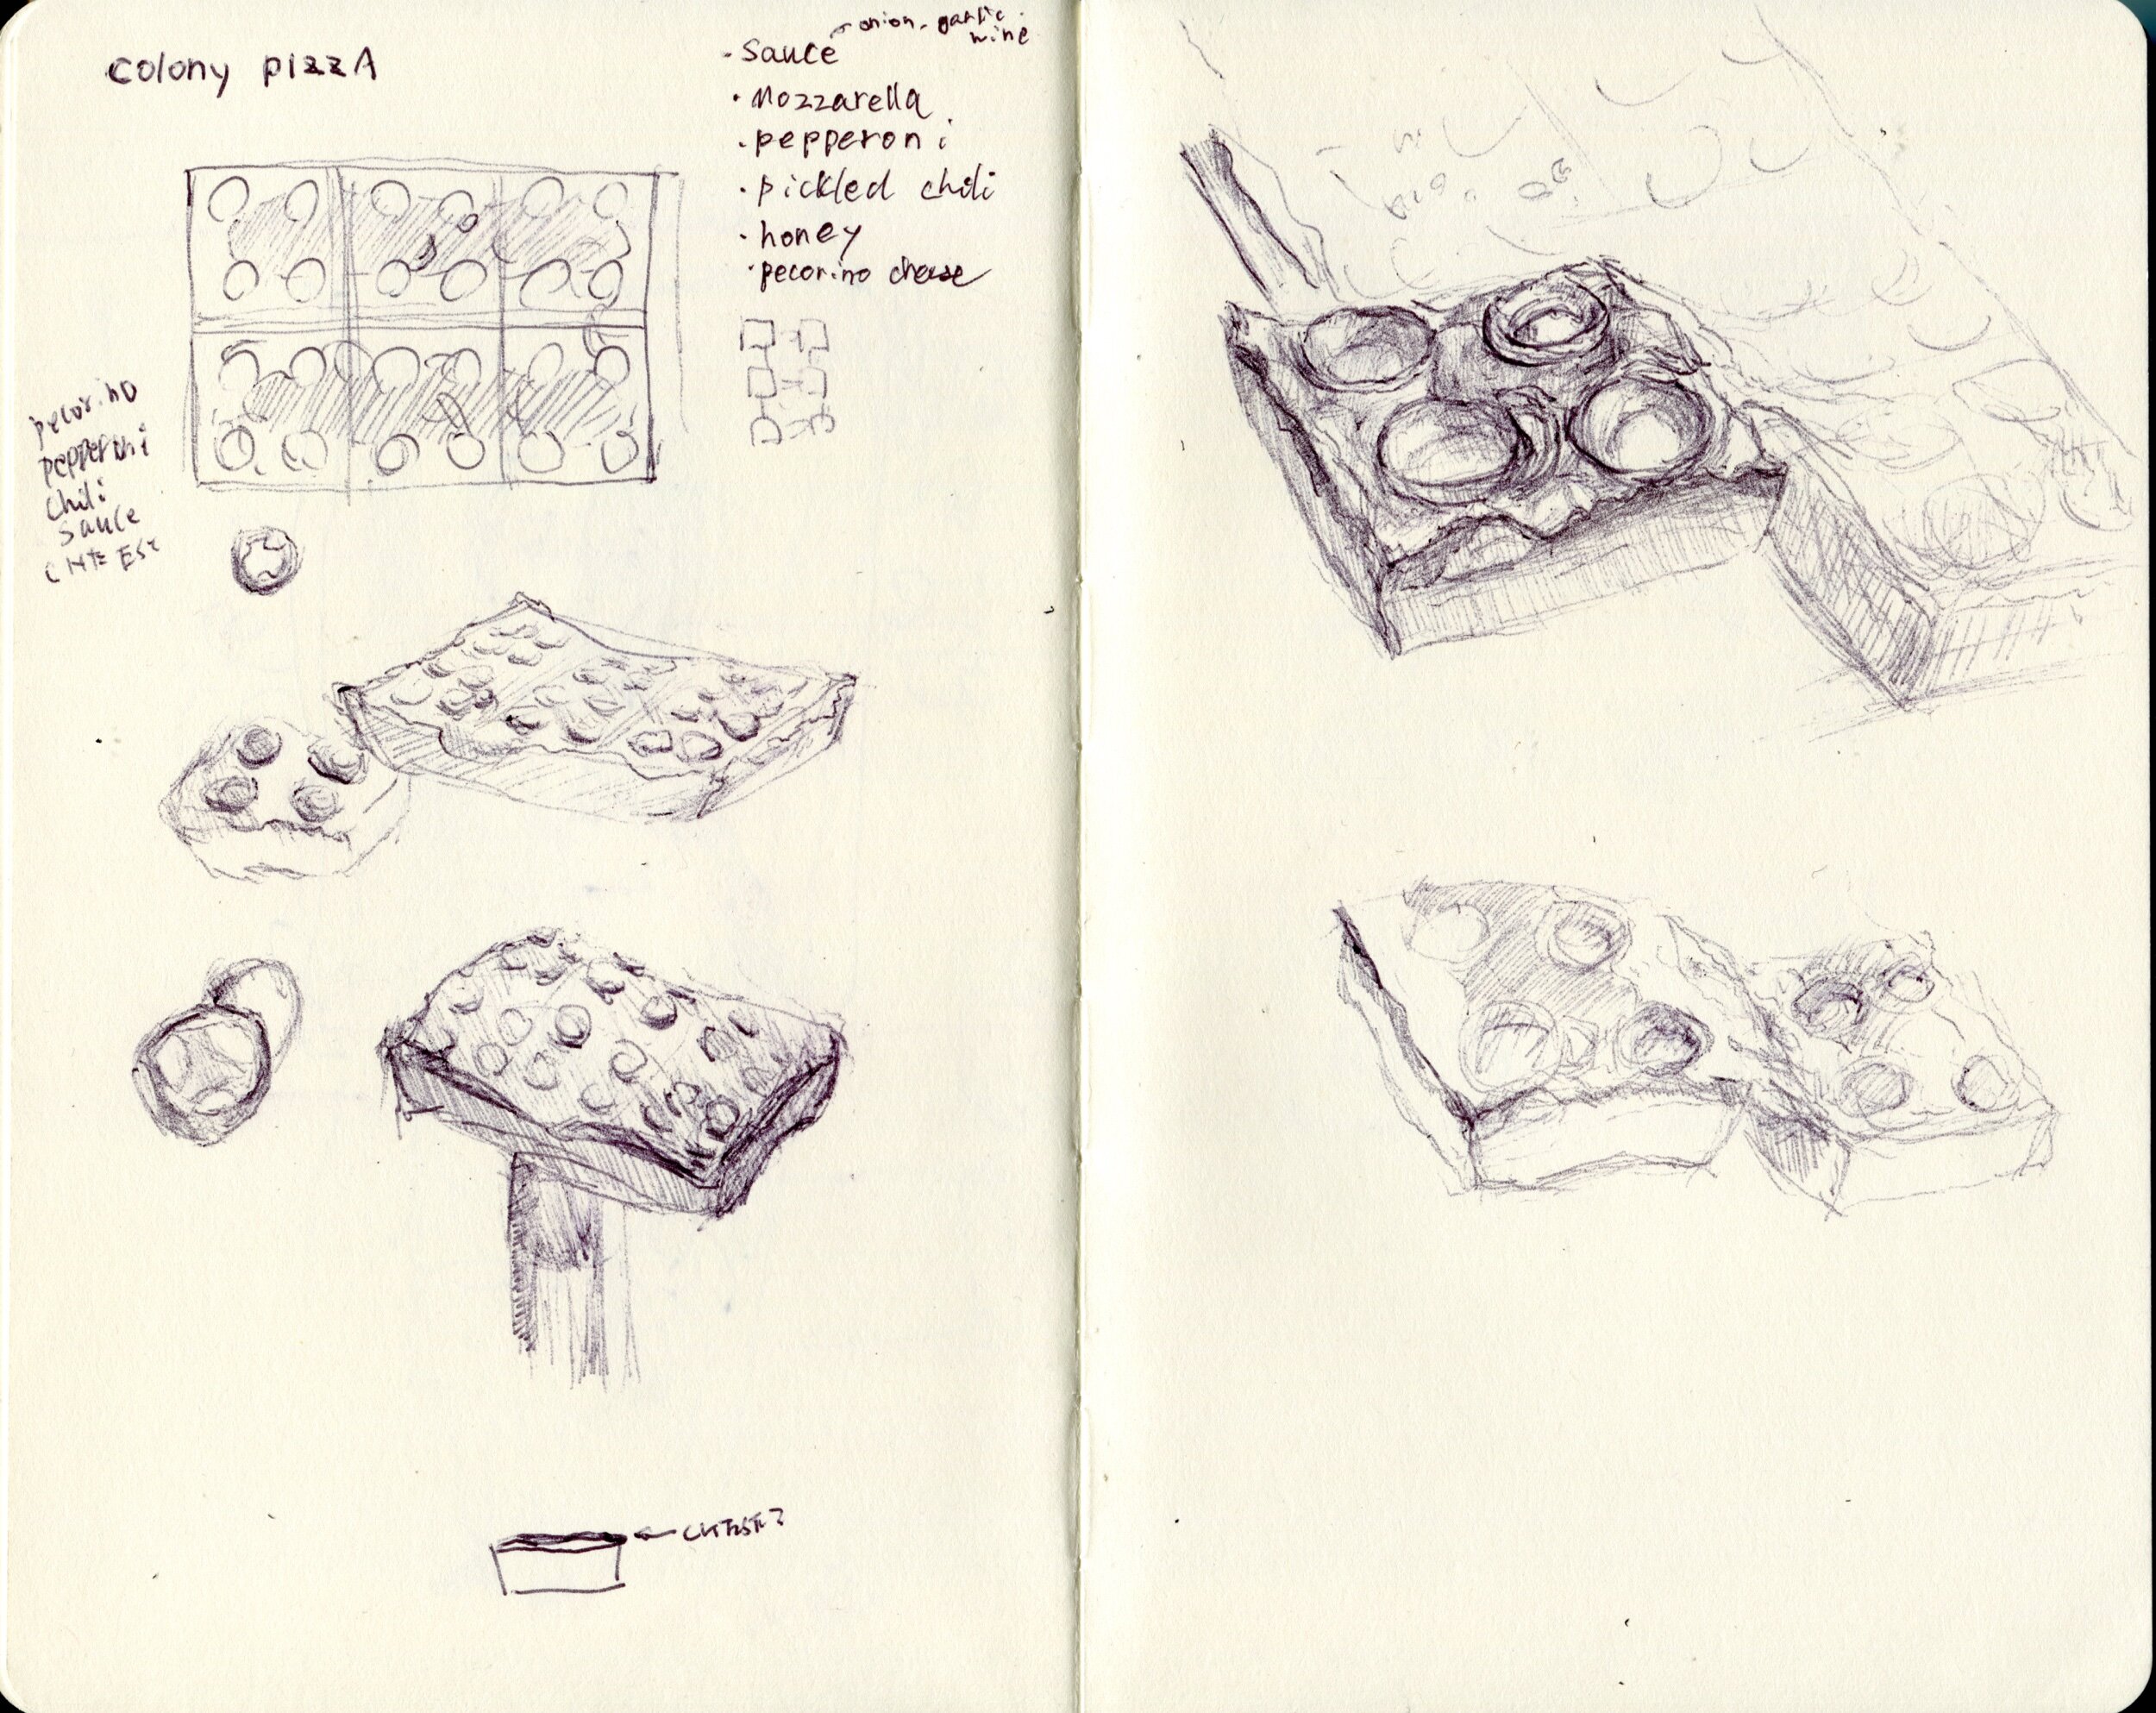 colony pizzA
onion, garlic
wine
- sauce
· Mozzarella
· pepperoni
· pickled chili
· honey
· pecorino cheese
pecorino
pepperoni
chili
sauce